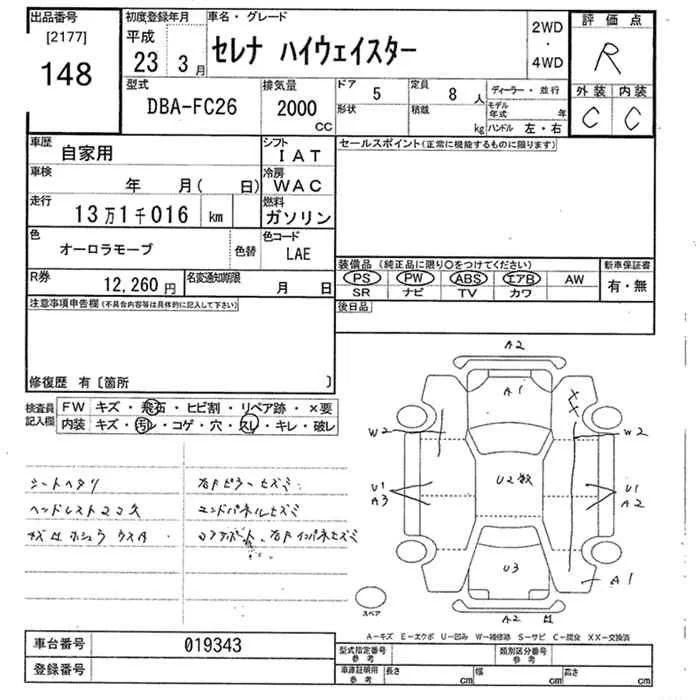 出品番号
[2177]
148
初度登録年月
平成
23 3月
車名・グレード
セレナ ハイウェイスター
2WD
・
4WD
評価点
R
外装 内装
C C
型式
DBA-FC26
排気量
2000
cc
ドア
5
形状
定員
8 人
積載
kg
ディーラー・並行
モデル年式 年
ハンドル 左・右
車歴
自家用
シフト
IAT
車検
年 月( 日)
冷房
WAC
走行
13万1千016 km
燃料
ガソリン
色
オーロラモーブ
色替
色コード
LAE
R券
12,260円
名変通知期限
月 日
セールスポイント(正常に機能するものに限ります)
装備品(純正品に限り○をつけてください)
PS PW ABS エアB AW
SR ナビ TV カワ
新車保証書
有・無
後日品
注意事項申告欄(不具合内容等は具体的に記入して下さい)
修復歴 有〔箇所 〕
検査員記入欄
FW キズ・飛石・ヒビ割・リペア跡・×要
内装 キズ・汚レ・コゲ・穴・スレ・キレ・破レ
シートヘタリ
ヘッドレスト
右Fピラーヒズミ
エンドパネルヒズミ
右Fインパネヒズミ
A2
A1
X
X
W2
W2
U2数
U1
A3
U1
A2
U3
A1
A2
スペア
A―キズ E―エクボ U―凹み W―補修跡 S―サビ C―腐食 XX―交換済
車台番号
019343
登録番号
型式指定番号
参考
類別区分番号
参考
車庫証明用
参考
長さ
cm
幅
cm
高さ
cm